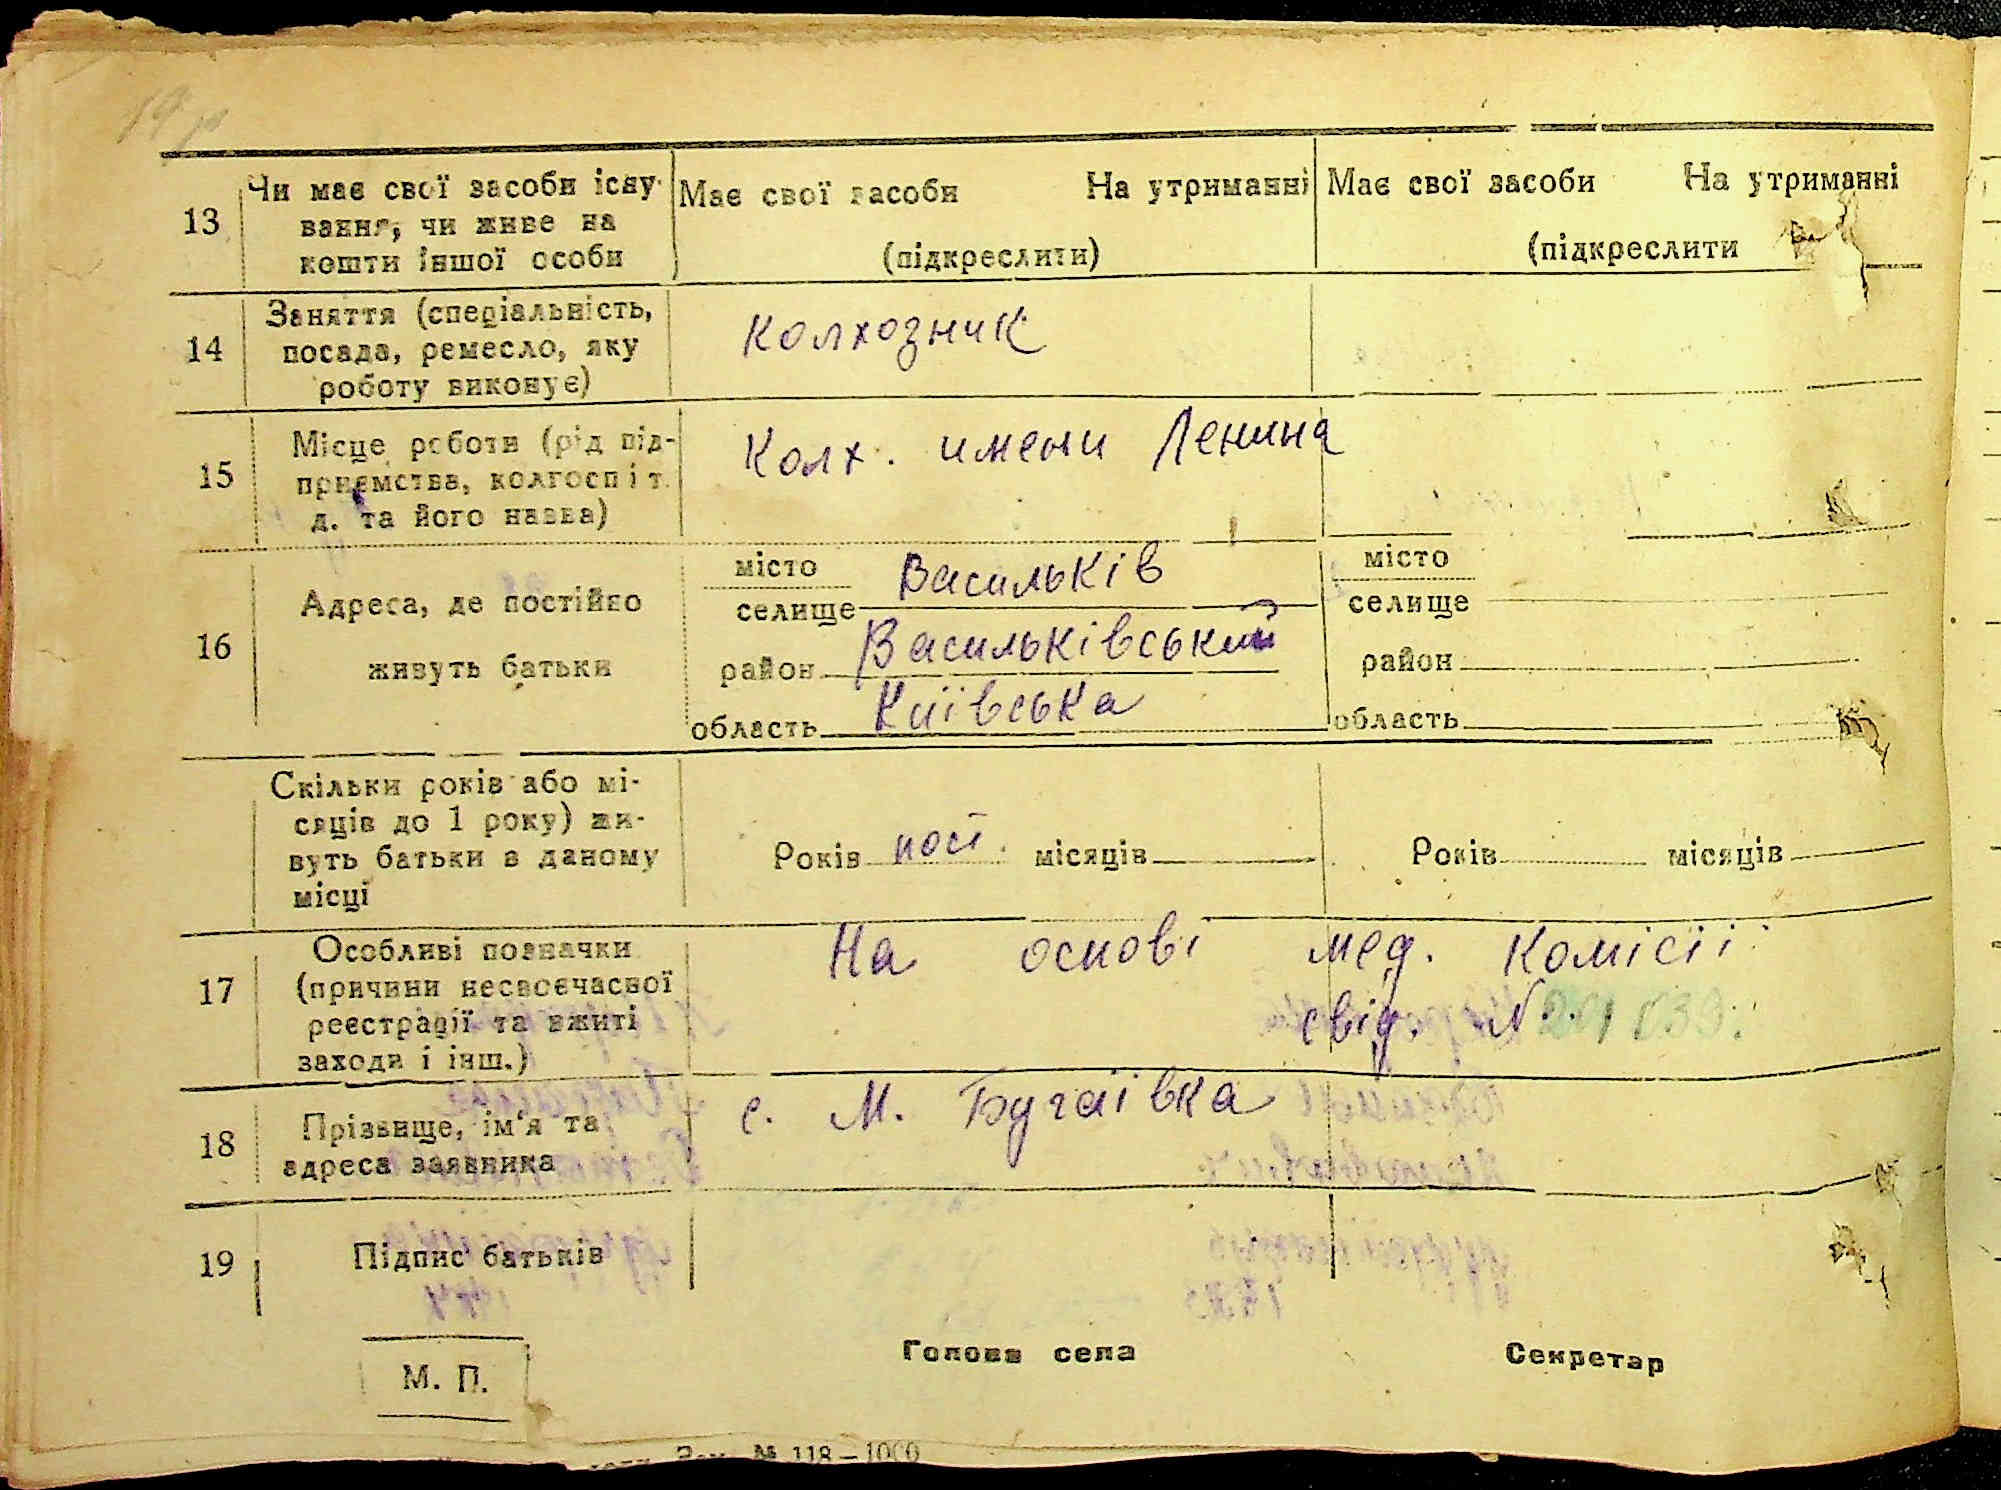 13
Чи має свої засоби існу
вання, чи живе на
кошти іншої особи
Має свої засоби На утриманні
(підкреслити)
Має свої засоби На утриманні
(підкреслити
14
Заняття (спеціальність,
посада, ремесло, яку
роботу виконує)
Колхозник
15
Місце роботи (рід під-
приємства, колгосп і т.
д. та його назва)
Колх. имени Ленина
16
Адреса, де постійно
живуть батьки
місто
селище Васильків
район Васильківський
область Київська
місто
селище
район
область
Скільки років або мі-
сяців до 1 року) жи-
вуть батьки в даному
місці
Років пост. місяців
Років місяців
17
Особливі позначки
(причини несвоєчасної
реєстрації та вжиті
заходи і інш.)
На основі мед. Комісії
свід. №
18
Прізвище, ім'я та
адреса заявника
с. М. Бугаївка
19
Підпис батьків
М. П.
Голова села
Секретар
№ 118—1000